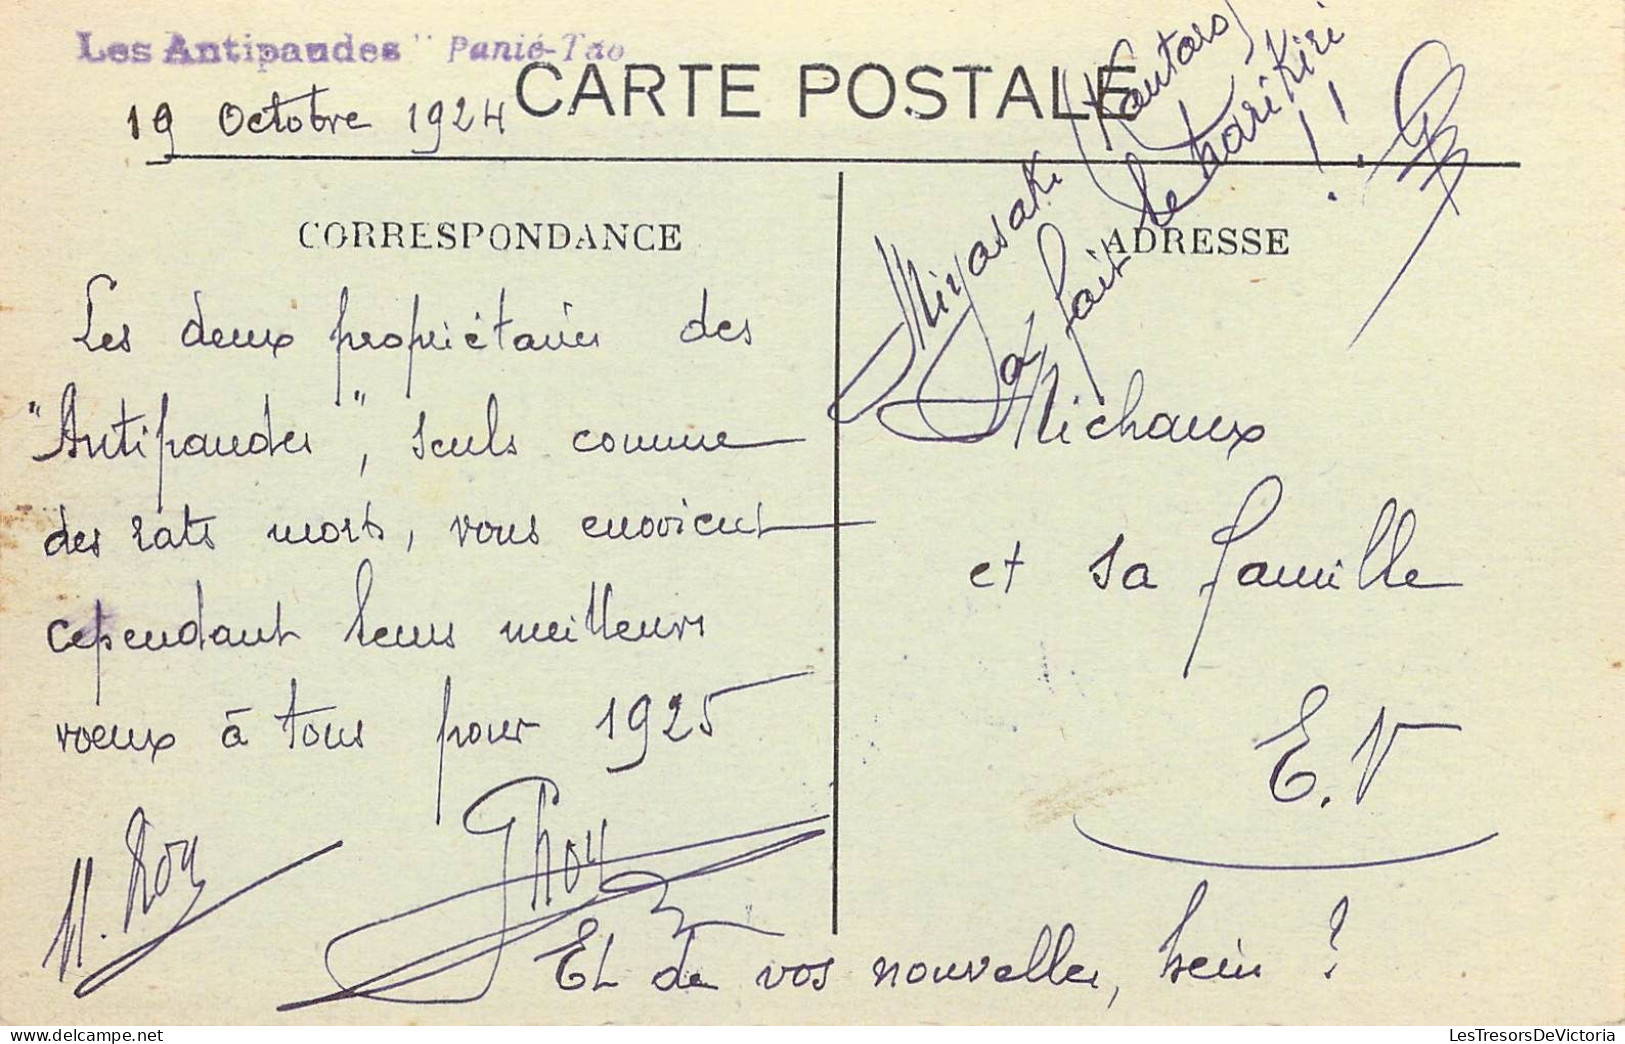 Les Antipaudes" Panié-Tao
CARTE POSTALE
19 Octobre 1924
CORRESPONDANCE
Les deux propriétaires des
"Antipaudes", seuls comme
des rats morts, vous envoient
cependant leurs meilleurs
voeux à tous pour 1925
M. Roy
GRoy
Et de vos nouvelles, hein ?
Miyasaki (Kantaro)
a fait le harikiri !!
ADRESSE
Michaux
et sa famille
E.V
LesTresorsDeVictoria
LesTresorsDeVictoria.com